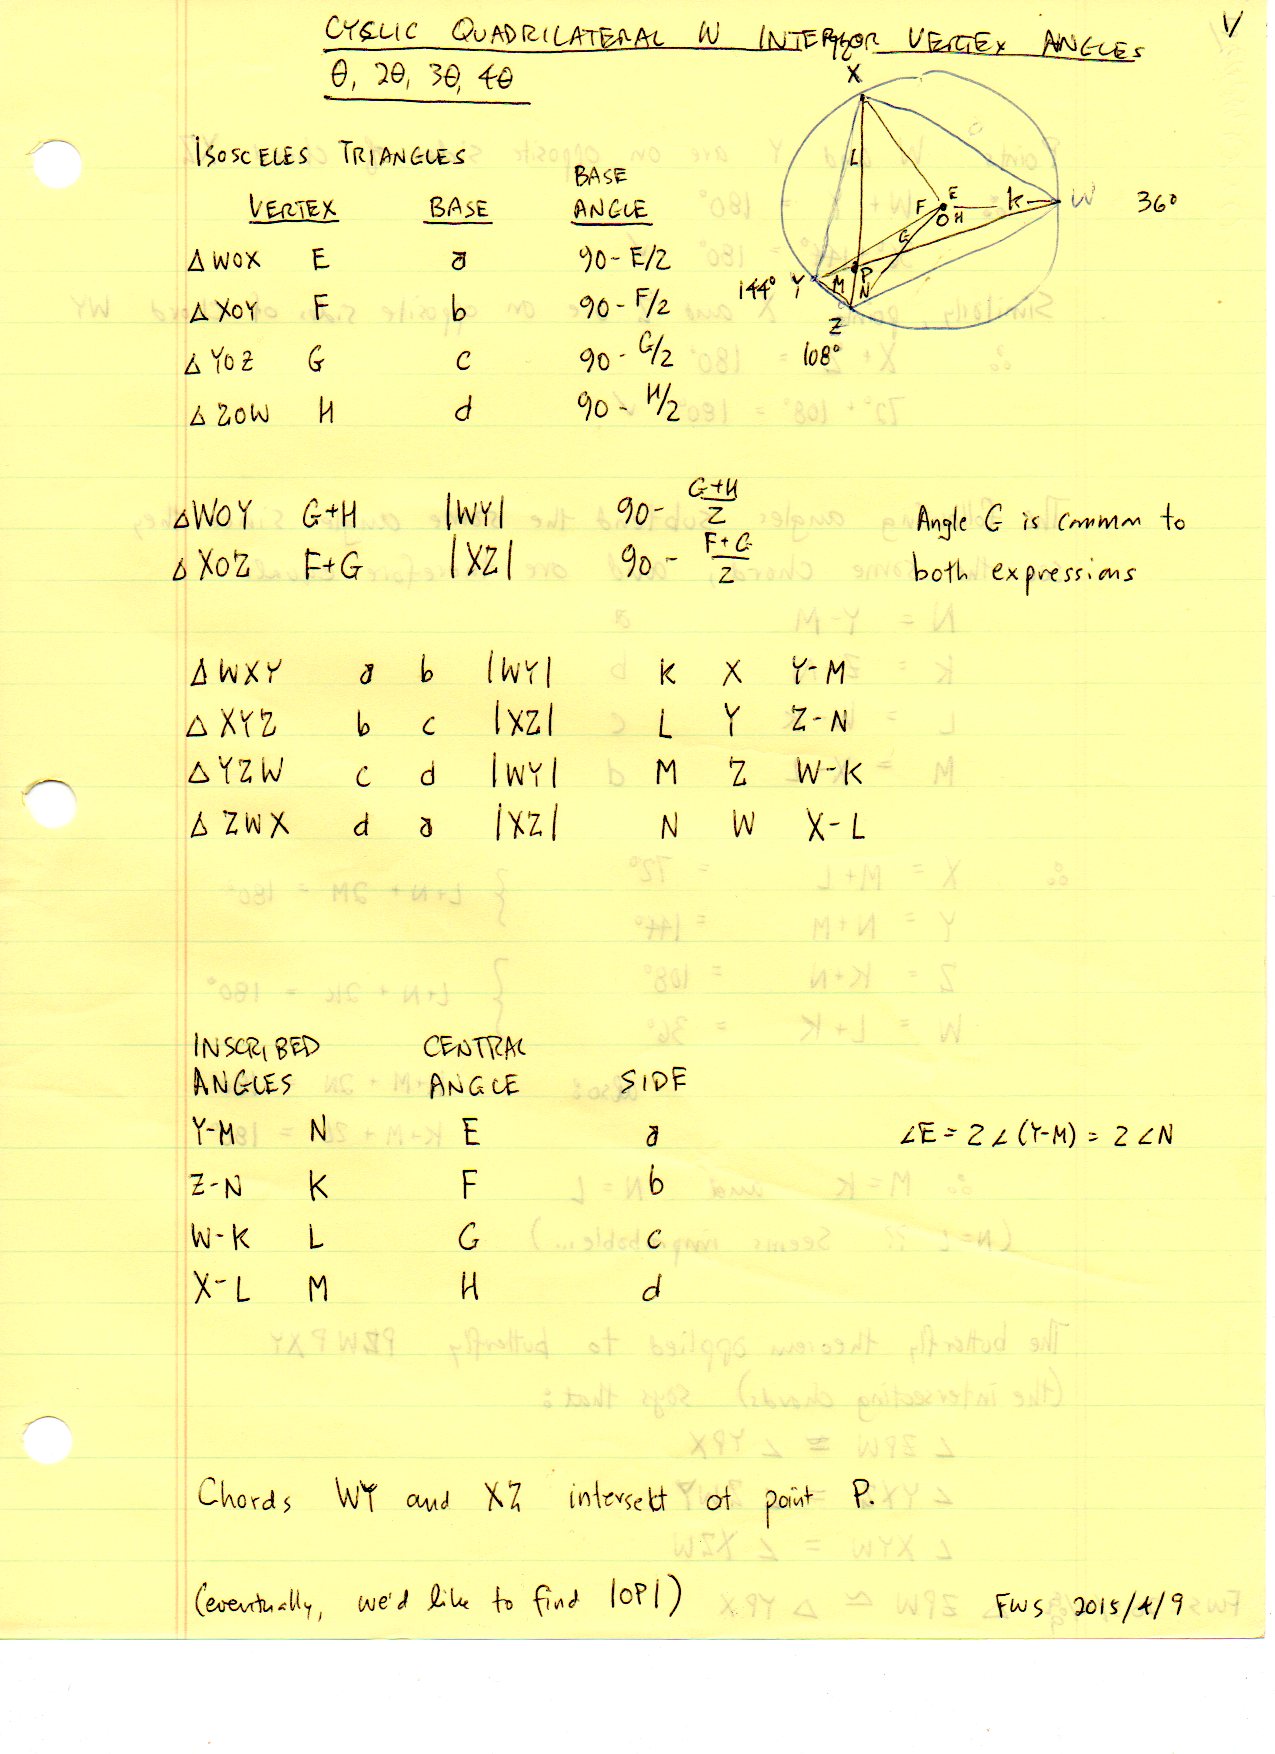 CYCLIC QUADRILATERAL W INTERIOR VERTEX ANGLES
θ, 2θ, 3θ, 4θ
V
X
L
E
F
O
H
K
W
36°
G
P
M
N
144° Y
Z
108°
ISOSCELES TRIANGLES
VERTEX BASE BASE ANGLE
△ WOX E a 90 - E/2
△ XOY F b 90 - F/2
△ YOZ G c 90 - G/2
△ ZOW H d 90 - H/2
△WOY G+H |WY| 90 - (G+H)/2
△ XOZ F+G |XZ| 90 - (F+G)/2
Angle G is common to
both expressions
△ WXY a b |WY| K X Y-M
△ XYZ b c |XZ| L Y Z-N
△ YZW c d |WY| M Z W-K
△ ZWX d a |XZ| N W X-L
INSCRIBED ANGLES CENTRAL ANGLE SIDE
Y-M N E a ∠E = 2∠(Y-M) = 2∠N
Z-N K F b
W-K L G c
X-L M H d
Chords WY and XZ intersect at point P.
(eventually, we'd like to find |OP|)
FWS 2015/4/9